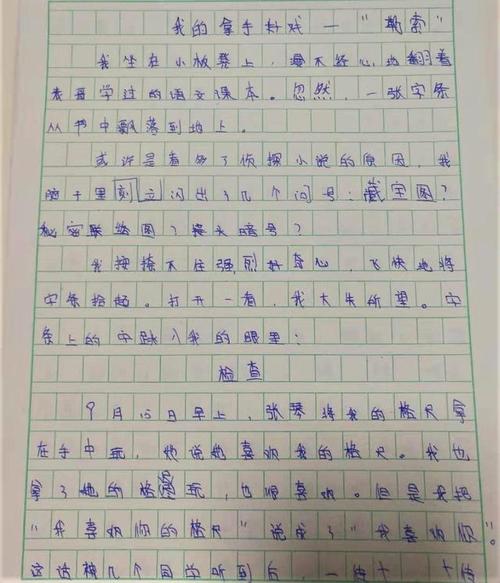 我的拿手好戏—"勒索"
我坐在小板凳上，漫不经心地翻着
表哥学过的语文课本。忽然，一张字条
从书中飘落到地上。
或许是看多了侦探小说的原因，我
脑子里刻立闪出了几个问号：藏宝图？
秘密联络图？接头暗号？
我按捺不住强烈好奇心，飞快地将
字条拾起。打开一看，我大失所望。字
条上的字跃入我的眼里：
检查
9月15日早上，张琴将我的格尺拿
在手中玩，她说她喜欢我的格尺。我也
拿了她的格尺玩，也顺喜欢。但是我把
"我喜欢你的格尺"说成了"我喜欢你"。
这话被几个同学听到后，一传十，十传